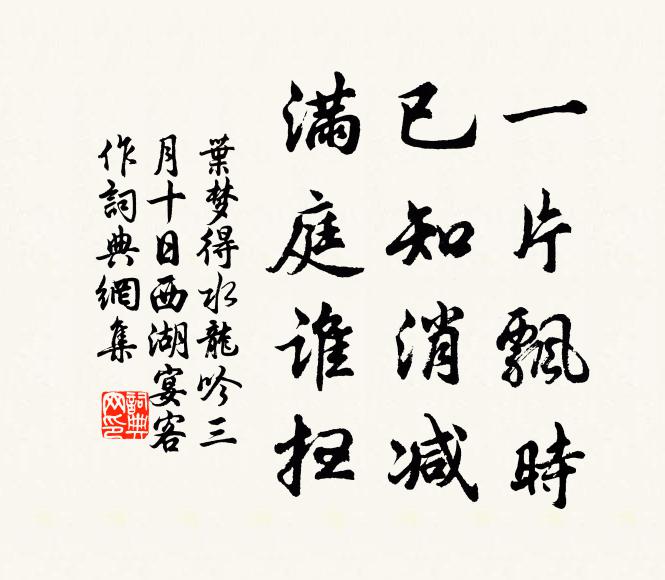 一片飄時
已知消减
滿庭谁扫
葉梦得水龍吟三
月十日西湖宴客
作詞典網集
詞典
网印